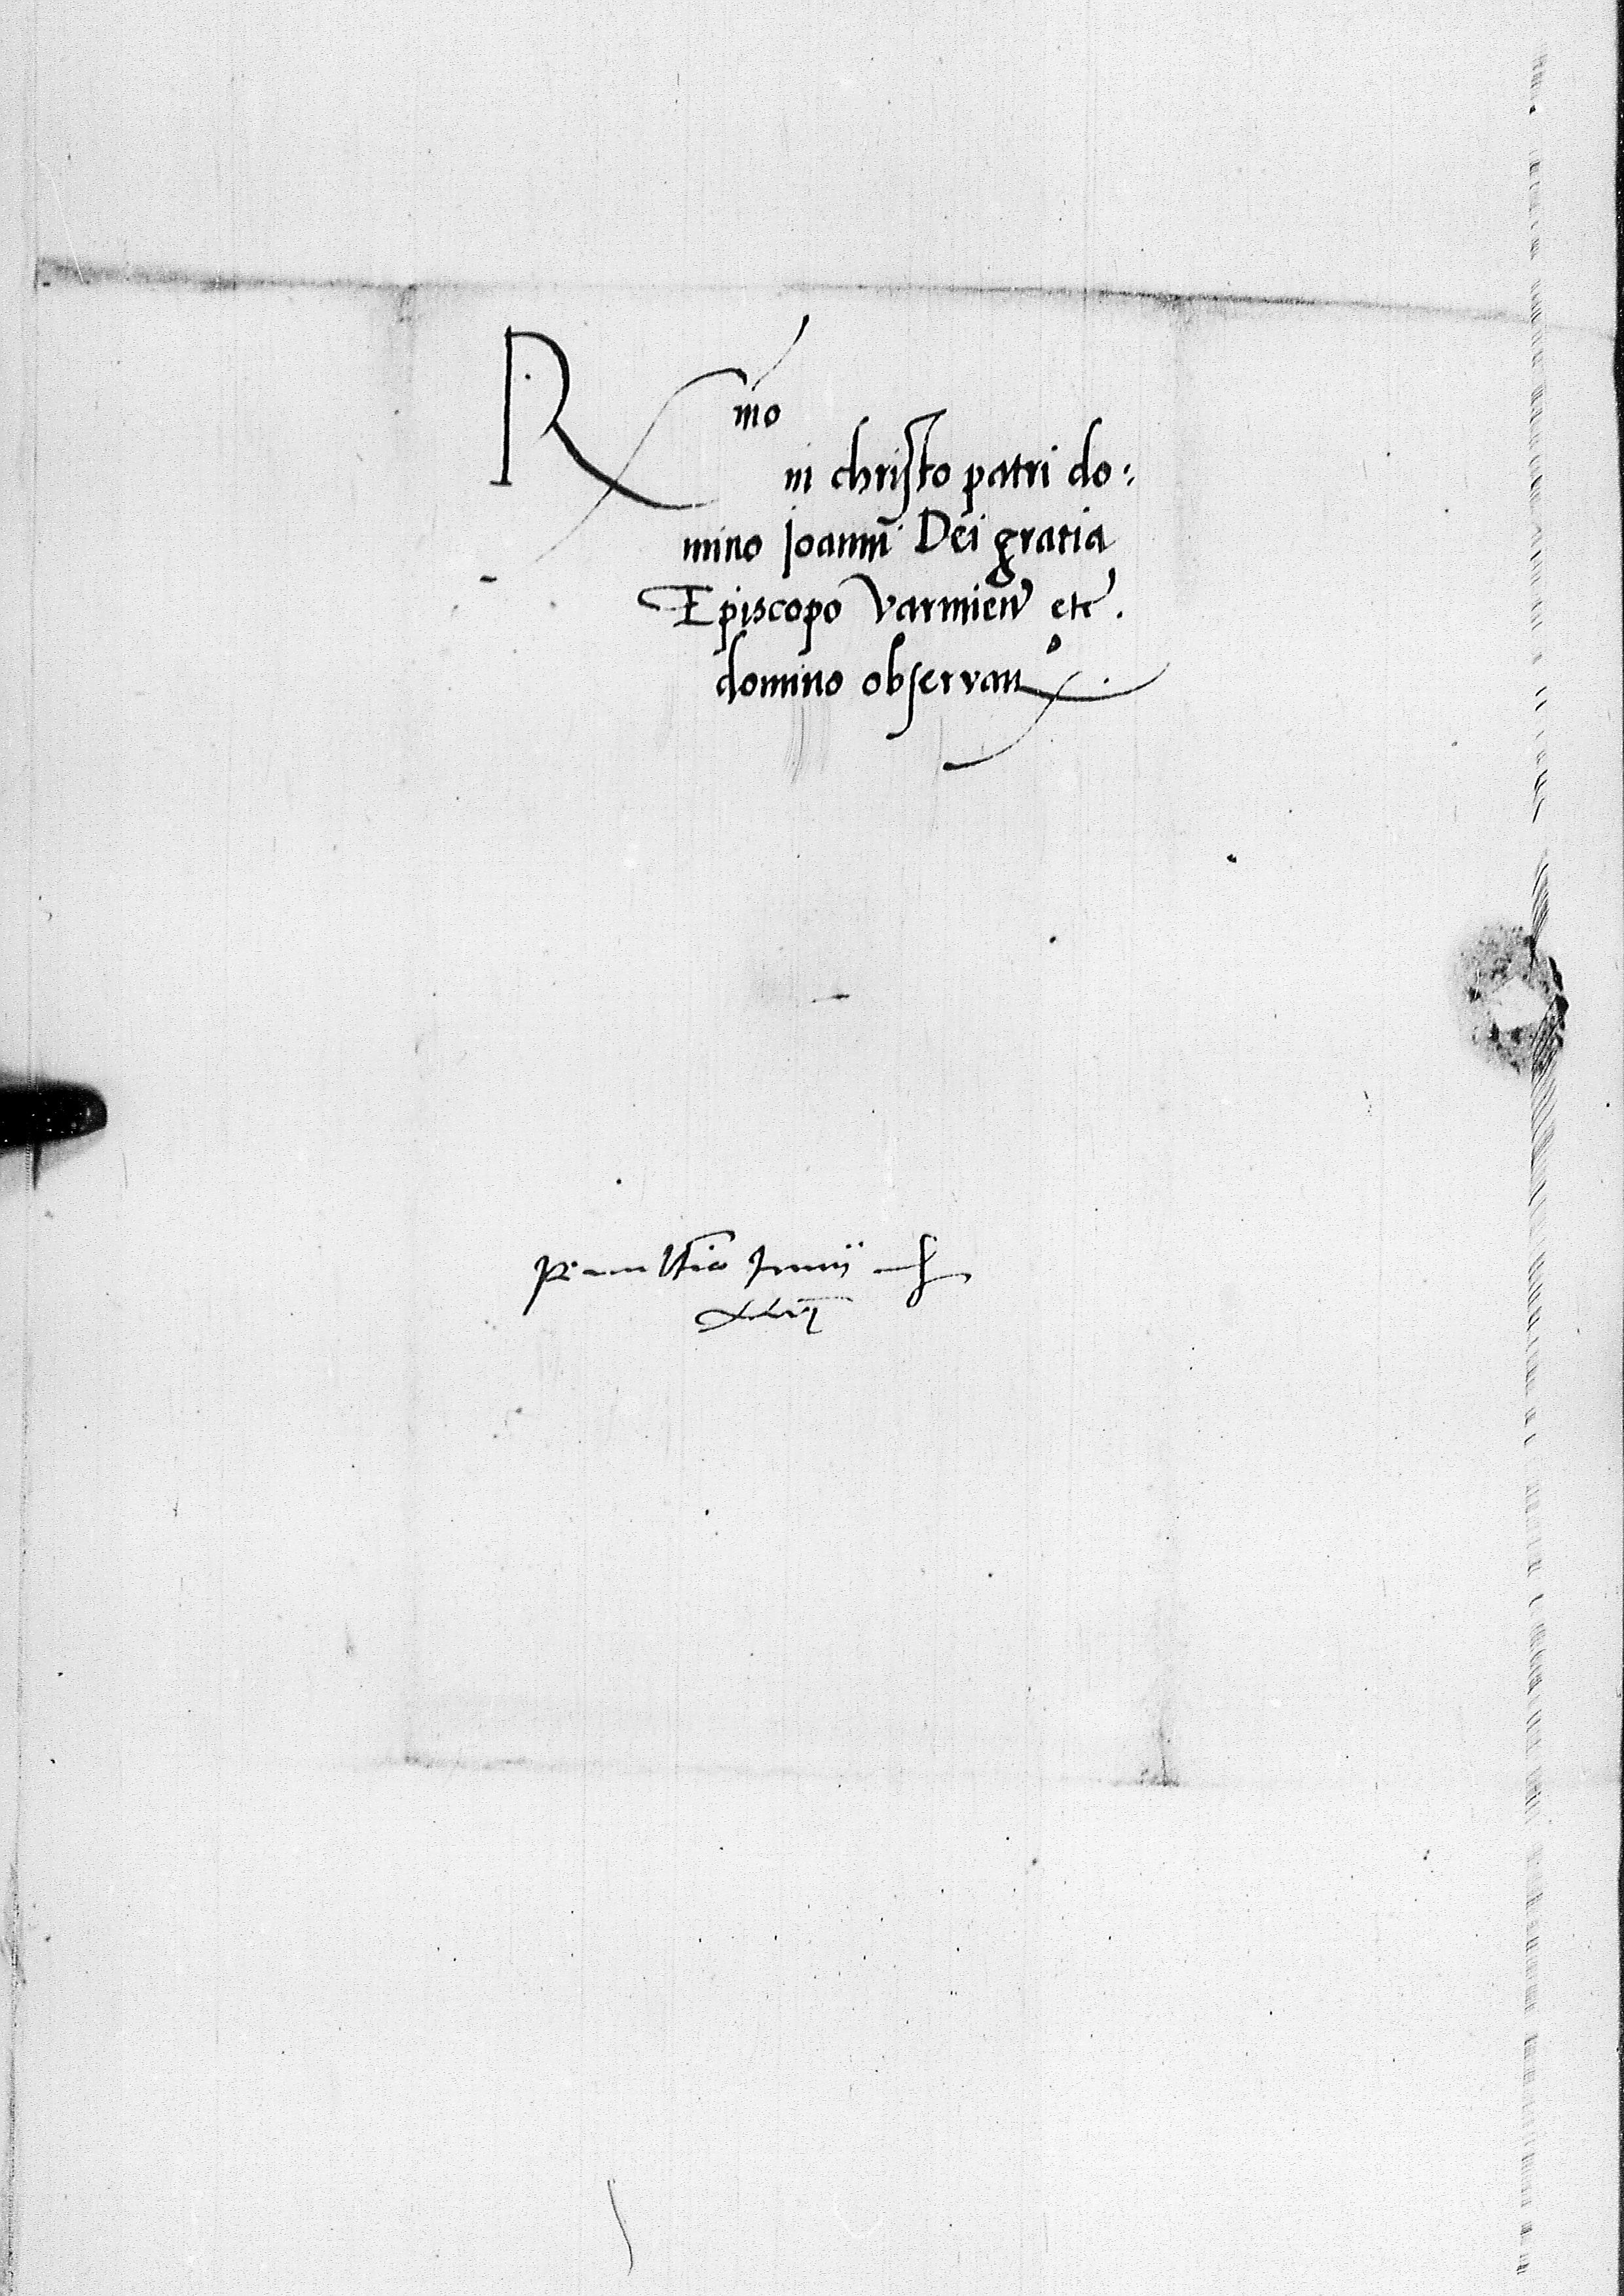 Rmo
in christo patri do:
mino Joanni Dei gratia
Episcopo Varmien etc.
domino observan
Junii